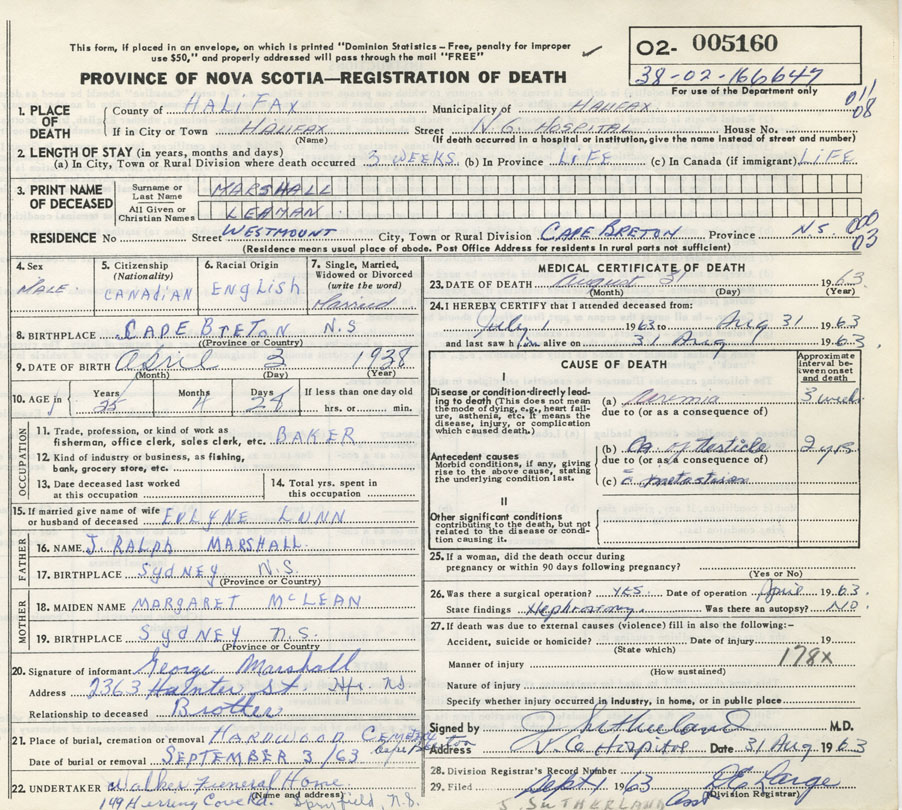 This form, if placed in an envelope, on which is printed "Dominion Statistics – Free, penalty for improper
use $50," and properly addressed will pass through the mail "FREE"
PROVINCE OF NOVA SCOTIA—REGISTRATION OF DEATH
O2- 005160
38-02-166647
For use of the Department only
011
08
1. PLACE OF DEATH County of HALIFAX Municipality of HALIFAX
If in City or Town HALIFAX (Name) Street V.G. HOSPITAL House No.
(If death occurred in a hospital or institution, give the name instead of street and number)
2. LENGTH OF STAY (in years, months and days)
(a) In City, Town or Rural Division where death occurred 3 WEEKS (b) In Province LIFE (c) In Canada (if immigrant) LIFE
3. PRINT NAME OF DECEASED Surname or Last Name MARSHALL
All Given or Christian Names LEAMAN
RESIDENCE No Street WESTMOUNT City, Town or Rural Division CAPE BRETON Province NS 000
03
(Residence means usual place of abode. Post Office Address for residents in rural parts not sufficient)
4. Sex MALE
5. Citizenship (Nationality) CANADIAN
6. Racial Origin ENGLISH
7. Single, Married, Widowed or Divorced (write the word) Married
8. BIRTHPLACE CAPE BRETON N.S
(Province or Country)
9. DATE OF BIRTH April 3 1938
(Month) (Day) (Year)
10. AGE in Years 25 Months 4 Days 28 If less than one day old hrs. or min.
OCCUPATION
11. Trade, profession, or kind of work as fisherman, office clerk, sales clerk, etc. BAKER
12. Kind of industry or business, as fishing, bank, grocery store, etc.
13. Date deceased last worked at this occupation
14. Total yrs. spent in this occupation
15. If married give name of wife or husband of deceased EDLYNE LUNN
FATHER
16. NAME J. RALPH MARSHALL
17. BIRTHPLACE SYDNEY N.S.
(Province or Country)
MOTHER
18. MAIDEN NAME MARGARET McLEAN
19. BIRTHPLACE SYDNEY N.S.
(Province or Country)
20. Signature of informant George Marshall
Address 2363 Hunter St. Hfx. NS
Relationship to deceased Brother
21. Place of burial, cremation or removal HARDWOOD CEMETERY
Cape Breton
Date of burial or removal SEPTEMBER 3/63
22. UNDERTAKER Walker Funeral Home
(Name and address)
149 Herring Cove Rd. Spryfield, N.S.
MEDICAL CERTIFICATE OF DEATH
23. DATE OF DEATH August 31 1963
(Month) (Day) (Year)
24. I HEREBY CERTIFY that I attended deceased from:
July 1 1963 to Aug 31 1963
and last saw him alive on 31 Aug 1963
CAUSE OF DEATH
Approximate interval between onset and death
I
Disease or condition directly leading to death (This does not mean the mode of dying, e.g., heart failure, asthenia, etc. It means the disease, injury, or complication which caused death.)
(a) Uremia 3 weeks
due to (or as a consequence of)
Antecedent causes
Morbid conditions, if any, giving rise to the above cause, stating the underlying condition last.
(b) Ca of Testicle 2 yrs
due to (or as a consequence of)
(c) c̄ metastases
II
Other significant conditions
contributing to the death, but not related to the disease or condition causing it.
25. If a woman, did the death occur during
pregnancy or within 90 days following pregnancy?
(Yes or No)
26. Was there a surgical operation? YES. Date of operation April 1963.
State findings Nephrostomy. Was there an autopsy? NO
27. If death was due to external causes (violence) fill in also the following:–
Accident, suicide or homicide? Date of injury 19
(State which)
Manner of injury 178X
(How sustained)
Nature of injury
Specify whether injury occurred in industry, in home, or in public place
Signed by J Sutherland M.D.
Address V.G. Hospital Date 31 Aug 1963
28. Division Registrar's Record Number
29. Filed Sept 1 1963
(Division Registrar)
S. SUTHERLAND